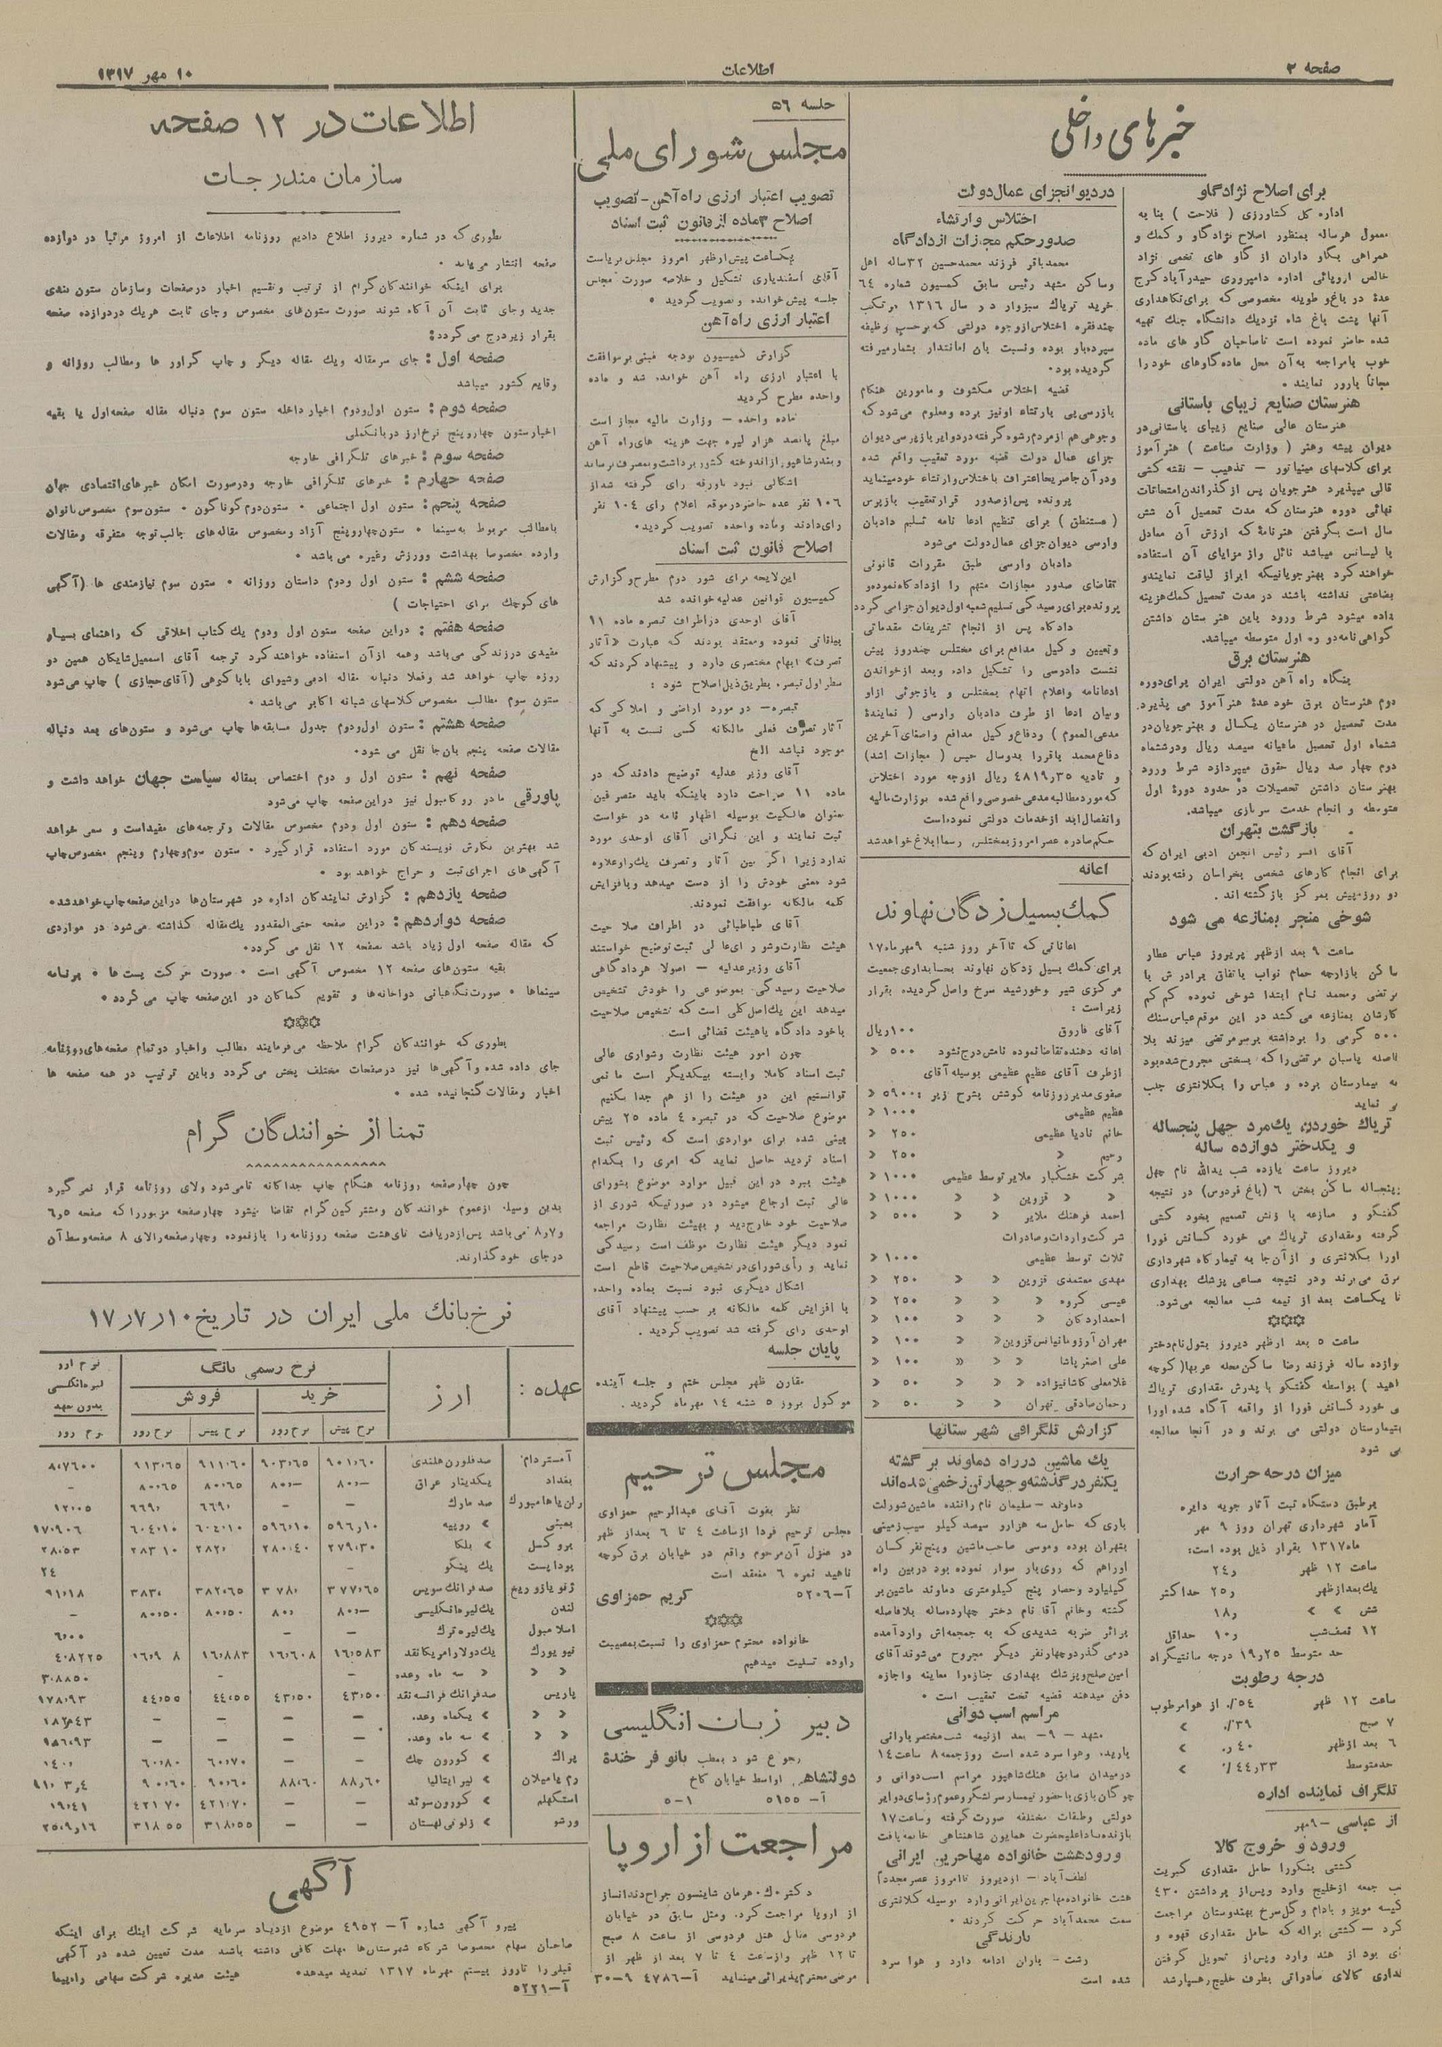 صفحه ۲
اطلاعات
۱۰ مهر ۱۳۱۷
خبرهای داخلی
برای اصلاح نژادگاو
اداره کل کشاورزی ( فلاحت ) بنا به
معمول هرساله بمنظور اصلاح نژادگاو و کمك و
همراهی بگاو داران از گاو های تخمی نژاد
خالص اروپائی اداره دامپروری حیدرآباد کرج
عدۀ در باغ و طویله مخصوصی که برای نگاهداری
آنها پشت باغ شاه نزدیك دانشگاه جنك تهیه
شده حاضر نموده است تا صاحبان گاو های ماده
خوب با مراجعه به آن محل ماده گاوهای خود را
مجاناً بارور نمایند .
هنرستان صنایع زیبای باستانی
هنرستان عالی صنایع زیبای باستانی در
دیوان پیشه و هنر ( وزارت صناعت ) هنر آموز
برای کلاسهای مینیاتور - تذهیب - نقشه کشی
قالی میپذیرد هنرجویان پس از گذراندن امتحانات
نهائی دوره هنرستان که مدت تحصیل آن شش
سال است بگرفتن هنرنامۀ که ارزش آن معادل
با لیسانس میباشد نائل و از مزایای آن استفاده
خواهند کرد بهنرجویانیکه ابراز لیاقت نمایند و
بضاعتی نداشته باشند در مدت تحصیل کمك هزینه
داده میشود شرط ورود باین هنرستان داشتن
گواهی نامه دوره اول متوسطه میباشد.
هنرستان برق
بنگاه راه آهن دولتی ایران برای دوره
دوم هنرستان برق خود عدۀ هنرآموز می پذیرد.
مدت تحصیل در هنرستان یکسال و بهنرجویان در
ششماه اول تحصیل ماهیانه سیصد ریال و در ششماه
دوم چهار صد ریال حقوق میپردازد شرط ورود
بهنرستان داشتن تحصیلات در حدود دورۀ اول
متوسطه و انجام خدمت سربازی میباشد.
بازگشت بتهران
آقای افسر رئیس انجمن ادبی ایران که
برای انجام کارهای شخصی بخراسان رفته بودند
دو روز پیش بمرکز بازگشته اند .
شوخی منجر بمنازعه می شود
ساعت ۹ بعد ازظهر پریروز عباس عطار
ساکن بازارچه حمام نواب باتفاق برادرش با
مرتضی و محمد نام ابتدا شوخی نموده کم کم
کارشان بمنازعه می کشد در این موقع عباس سنك
۵۰۰ گرمی را برداشته برسر مرتضی میزند بلا
فاصله پاسبان مرتضی را که بسختی مجروح شده بود
به بیمارستان برده و عباس را بکلانتری جلب
می نماید
تریاك خوردن یكمرد چهل پنجساله
و یكدختر دوازده ساله
دیروز ساعت یازده شب یدالله نام چهل
وپنجساله ساکن بخش ۶ (باغ فردوس) در نتیجه
گفتگو و منازعه با زنش تصمیم بخود کشی
گرفته و مقداری تریاك می خورد کسانش فورا
اورا بکلانتری و از آنجا به تیمارگاه شهرداری
شرق می برند و در نتیجه مساعی پزشك بهداری
تا یکساعت بعد از نیمه شب معالجه می شود.
ساعت ۵ بعد ازظهر دیروز بتول نام دختر
دوازده ساله فرزند رضا ساکن محله عربها (کوچه
ناهید ) بواسطه گفتگو با پدرش مقداری تریاك
می خورد کسانش فورا از واقعه آگاه شده اورا
بتیمارستان دولتی می برند و در آنجا معالجه
می شود
میزان درجه حرارت
برطبق دستگاه ثبت آثار جویه دایره
آمار شهرداری تهران روز ۹ مهر
ماه ۱۳۱۷ بقرار ذیل بوده است:
ساعت ۱۲ ظهر ۲۴٫
یك بعد از ظهر ۲۵٫ حد اکثر
شش » » ۱۸٫
۱۲ نصف شب ۱۰٫ حداقل
حد متوسط ۱۹٫۲۵ درجه سانتیگراد
درجه رطوبت
ساعت ۱۲ ظهر ۵۴٪ از هوا مرطوب
۷ صبح ۳۹٪ »
۶ بعد ازظهر ۴۰٪ »
حد متوسط ۴۴٫۳۳٪ »
تلگراف نماینده اداره
از عباسی - ۹ مهر
ورود و خروج کالا
کشتی بنکورا حامل مقداری کبریت
شب جمعه ازخلیج وارد و پس از برداشتن ۴۳۰
کیسه مویز و بادام و گل سرخ بهندوستان مراجعت
کرد - کشتی براله که حامل مقداری قهوه و
چای بود از هند وارد و پس از تحویل گرفتن
مقداری کالای صادراتی بطرف خلیج رهسپار شد
دردیوانجزای عمال دولت
اختلاس و ارتشاء
صدور حکم مجازات از دادگاه
محمدباقر فرزند محمدحسین ۳۲ ساله اهل
وساکن مشهد رئیس سابق کمسیون شماره ۶۴
خرید تریاك سبزوار در سال ۱۳۱۶ مرتکب
چند فقره اختلاس از وجوه دولتی که برحسب وظیفه
سپرده باو بوده و نسبت بان امانتدار بشمار میرفته
گردیده بود.
قضیه اختلاس مکشوف و مامورین هنگام
بازرسی پی بارتشاء او نیز برده و معلوم می شود که
وجوهی هم از مردم رشوه گرفته در دوایر بازپرسی دیوان
جزای عمال دولت قضیه مورد تعقیب واقع شده
و در آنجا صریحا اعتراف باختلاس و ارتشاء خود مینماید
پرونده پس از صدور قرار تعقیب بازپرس
( مستنطق ) برای تنظیم ادعا نامه تسلیم دادبان
وارسی دیوان جزای عمال دولت می شود
دادبان وارسی طبق مقررات قانونی
تقاضای صدور مجازات متهم را از دادگاه نموده و
پرونده برای رسیدگی تسلیم شعبه اول دیوان جزا می گردد
دادگاه پس از انجام تشریفات مقدماتی
وتعیین وکیل مدافع برای مختلس چند روز پیش
نشست دادرسی را تشکیل داده و بعد از خواندن
ادعانامه و اعلام اتهام بمختلس و بازجوئی از او
وبیان ادعا از طرف دادبان وارسی ( نمایندۀ
مدعی العموم ) و دفاع وکیل مدافع و اصغای آخرین
دفاع محمد باقر را بدو سال حبس ( مجازات اشد)
و تادیه ۴۸۱۹٫۳۵ ریال از وجه مورد اختلاس
که مورد مطالبه مدعی خصوصی واقع شده بوزارت مالیه
وانفصال ابد از خدمات دولتی نموده است
حکم صادره عصر امروز بمختلس رسما ابلاغ خواهد شد
اعانه
کمك بسیل زدگان نهاوند
اعاناتی که تا آخر روز شنبه ۹ مهر ماه ۱۷
برای کمك بسیل زدگان نهاوند بحسابداری جمعیت
مرکزی شیر و خورشید سرخ واصل گردیده بقرار
زیر است :
آقای فاروق ۱۰۰ ریال
اعانه دهنده تقاضا نموده نامش درج نشود ۵۰۰ »
از طرف آقای عظیم عظیمی بوسیله آقای
صفوی مدیر روزنامه کوشش بشرح زیر : ۵۹۰۰ »
عظیم عظیمی ۱۰۰۰ »
خانم نادیا عظیمی ۲۵۰ »
رحیم » ۲۵۰ »
شرکت خشکبار ملایر توسط عظیمی ۱۰۰۰ »
» » قزوین » » ۱۰۰۰ »
احمد فرهنك ملایر » » ۵۰۰ »
شرکت واردات و صادرات
ثلاث توسط عظیمی ۱۰۰۰ »
مهدی معتمدی قزوین » » ۲۵۰ »
عیسی کروه » » ۲۵۰ »
احمد اردکان » » ۱۰۰ »
مهران آرزومانیانس قزوین » » ۱۰۰ »
علی اصغر پاشا » » ۱۰۰ »
غلامعلی کاشانیزاده » » ۵۰ »
رحمان صادقی تهران » » ۵۰ »
گزارش تلگرافی شهرستانها
یك ماشین درراه دماوند برگشته
یکنفر درگذشته و چهارتن زخمی شده اند
دماوند - سلیمان نام راننده ماشین شورلت
باری که حامل سه هزار و سیصد کیلو سیب زمینی
بتهران بوده و موسی صاحب ماشین و پنج نفر کسان
اوراهم که روی بار سوار نموده بود در بین راه
گیلیارد و حصار پنج کیلومتری دماوند ماشین بر
گشته و خانم آقا نام دختر چهارده ساله بلافاصله
براثر ضربه شدیدی که به جمجمه اش وارد آمده
درمی گذرد و چهار نفر دیگر مجروح می شوند آقای
امین صلح و پزشك بهداری جنازه را معاینه و اجازه
دفن میدهند قضیه تحت تعقیب است .
مراسم اسب دوانی
مشهد - ۹ - بعد ازنیمه شب مختصر بارانی
بارید . و هوا سرد شده است روز جمعه ۸ ساعت ۱۴
در میدان سابق هنك شاهپور مراسم اسب دوانی و
چوگان بازی با حضور تیمسار سرلشگر و عموم رؤسای دوایر
دولتی و طبقات مختلفه صورت گرفته و ساعت ۱۷
بازنده باد اعلیحضرت همایون شاهنشاهی خاتمه یافت
ورود هشت خانواده مهاجرین ایرانی
لطف آباد - از دیروز تا امروز عصر مجدداً
هشت خانواده مهاجرین ایرانی وارد بوسیله کلانتری
سمت محمد آباد حرکت کردند .
بارندگی
رشت - باران ادامه دارد و هوا سرد
شده است
جلسه ۵۶
مجلس شورای ملی
تصویب اعتبار ارزی راه آهن - تصویب
اصلاح ۳ ماده از قانون ثبت اسناد
یکساعت پیش از ظهر امروز مجلس بریاست
آقای اسفندیاری تشکیل و خلاصه صورت مجلس
جلسه پیش خوانده و تصویب گردید .
اعتبار ارزی راه آهن
گزارش کمیسیون بودجه مبنی بر موافقت
با اعتبار ارزی راه آهن خوانده شد و ماده
واحده مطرح گردید
ماده واحده - وزارت مالیه مجاز است
مبلغ پانصد هزار لیره جهت هزینه های راه آهن
و بندر شاهپور از اندوخته کشور برداشت و بمصرف برساند
اشکالی نبود باورقه رای گرفته شد از
۱۰۶ نفر عده حاضر در موقع اعلام رای ۱۰۴ نفر
رای دادند و ماده واحده تصویب گردید.
اصلاح قانون ثبت اسناد
این لایحه برای شور دوم مطرح و گزارش
کمیسیون قوانین عدلیه خوانده شد
آقای اوحدی در اطراف تبصره ماده ۱۱
بیاناتی نموده و معتقد بودند که عبارت «آثار
تصرف» ابهام مختصری دارد و پیشنهاد کردند که
سطر اول تبصره بطریق ذیل اصلاح شود :
تبصره - در مورد اراضی و املاکی که
آثار تصرف فعلی مالکانه کسی نسبت به آنها
موجود نباشد الخ
آقای وزیر عدلیه توضیح دادند که در
ماده ۱۱ صراحت دارد باینکه باید متصرفین
بعنوان مالکیت بوسیله اظهار نامه در خواست
ثبت نمایند و این نگرانی آقای اوحدی مورد
ندارد زیرا اگر بین آثار و تصرف یك را و علاوه
شود معنی خودش را از دست میدهد و با افزایش
کلمه مالکانه موافقت نمودند.
آقای طباطبائی در اطراف صلاحیت
هیئت نظارت و شورای عالی ثبت توضیح خواستند
آقای وزیر عدلیه - اصولا هر دادگاهی
صلاحیت رسیدگی بموضوعی را خودش تشخیص
میدهد این یك اصل کلی است که تشخیص صلاحیت
باخود دادگاه یا هیئت قضائی است .
چون امور هیئت نظارت و شورای عالی
ثبت اسناد کاملا وابسته بیکدیگر است ما نمی
توانستیم این دو هیئت را از هم جدا بکنیم
موضوع صلاحیت که در تبصره ۴ ماده ۲۵ پیش
بینی شده برای مواردی است که رئیس ثبت
اسناد تردید حاصل نماید که امری را بکدام
هیئت ببرد در این قبیل موارد موضوع بشورای
عالی ثبت ارجاع میشود در صورتیکه شوری از
صلاحیت خود خارج دید و بهیئت نظارت مراجعه
نمود دیگر هیئت نظارت موظف است رسیدگی
نماید و رأی شورای در تشخیص صلاحیت قاطع است
اشکال دیگری نبود نسبت بماده واحده
با افزایش کلمه مالکانه بر حسب پیشنهاد آقای
اوحدی رای گرفته شد تصویب گردید .
پایان جلسه
مقارن ظهر مجلس ختم و جلسه آینده
موکول بروز ۵ شنبه ۱۴ مهرماه گردید.
مجلس ترحیم
نظر بفوت آقای عبدالرحیم حمزاوی
مجلس ترحیم فردا از ساعت ۴ تا ۶ بعد از ظهر
در منزل آن مرحوم واقع در خیابان برق کوچه
ناهید نمره ۶ منعقد است
آ-۵۲۰۶ کریم حمزاوی
خانواده محترم حمزاوی را نسبت بمصیبت
وارده تسلیت میدهیم
دبیر زبان انگلیسی
رجوع شود بمطب بانو فرخندۀ
دولتشاهی اواسط خیابان کاخ
آ- ۵۱۵۵ ۱-۵
مراجعت از اروپا
دکتر ك . هرمان شاینسون جراح دندانساز
از اروپا مراجعت کرد. و مثل سابق در خیابان
فردوسی مقابل هتل فردوسی از ساعت ۸ صبح
تا ۱۲ ظهر و از ساعت ۴ تا ۷ بعد از ظهر از
مرضی محترم پذیرائی مینماید آ-۴۷۸۶ ۹-۳۰
اطلاعات در ۱۲ صفحه
سازمان مندرجات
بطوری که در شماره دیروز اطلاع دادیم روزنامه اطلاعات از امروز مرتبا در دوازده
صفحه انتشار می یابد .
برای اینکه خوانندگان گرام از ترتیب و تقسیم اخبار در صفحات و سازمان ستون بندی
جدید وجای ثابت آن آگاه شوند صورت ستون های مخصوص وجای ثابت هریك در دوازده صفحه
بقرار زیر درج می گردد:
صفحه اول : جای سرمقاله و یك مقاله دیگر و چاپ گراور ها و مطالب روزانه و
وقایع کشور میباشد
صفحه دوم : ستون اول و دوم اخبار داخله ستون سوم دنباله مقاله صفحه اول یا بقیه
اخبار ستون چهار و پنج نرخ ارز در بانك ملی
صفحه سوم : خبرهای تلگرافی خارجه
صفحه چهارم : خبرهای تلگرافی خارجه و در صورت امکان خبرهای اقتصادی جهان
صفحه پنجم : ستون اول اجتماعی . ستون دوم گوناگون . ستون سوم مخصوص بانوان
با مطالب مربوط به سینما . ستون چهار و پنج آزاد و مخصوص مقاله های جالب توجه متفرقه و مقالات
وارده مخصوصا بهداشت و ورزش و غیره می باشد .
صفحه ششم : ستون اول و دوم داستان روزانه . ستون سوم نیازمندی ها (آگهی
های کوچك برای احتیاجات )
صفحه هفتم : در این صفحه ستون اول و دوم یك کتاب اخلاقی که راهنمای بسیار
مفیدی در زندگی می باشد و همه از آن استفاده خواهند کرد ترجمه آقای اسمعیل شایگان همین دو
روزه چاپ خواهد شد و فعلا دنباله مقاله ادبی و شیوای بابا کوهی (آقای حجازی ) چاپ می شود
ستون سوم مطالب مخصوص کلاسهای شبانه اکابر می باشد .
صفحه هشتم : ستون اول و دوم جدول مسابقه ها چاپ می شود و ستون های بعد دنباله
مقالات صفحه پنجم بان جا نقل می شود.
صفحه نهم : ستون اول و دوم اختصاص بمقاله سیاست جهان خواهد داشت و
پاورقی مادر روکامبول نیز در این صفحه چاپ می شود
صفحه دهم : ستون اول و دوم مخصوص مقالات و ترجمه های مفید است و سعی خواهد
شد بهترین نگارش نویسندگان مورد استفاده قرار گیرد . ستون سوم و چهارم و پنجم مخصوص چاپ
آگهی های اجرای ثبت و حراج خواهد بود .
صفحه یازدهم : گزارش نمایندگان اداره در شهرستان ها در این صفحه چاپ خواهد شد .
صفحه دوازدهم : در این صفحه حتی المقدور یك مقاله گذاشته می شود در مواردی
که مقاله صفحه اول زیاد باشد بصفحه ۱۲ نقل می گردد.
بقیه ستون های صفحه ۱۲ مخصوص آگهی است . صورت حرکت پست ها . برنامه
سینماها . صورت نگهبانی دواخانه ها و تقویم کماکان در این صفحه چاپ می گردد .
بطوری که خوانندگان گرام ملاحظه می فرمایند مطالب و اخبار در تمام صفحه های روزنامه
جای داده شده و آگهی ها نیز در صفحات مختلف پخش می گردد و باین ترتیب در همه صفحه ها
اخبار و مقالات گنجانیده شده .
تمنا از خوانندگان گرام
چون چهار صفحه روزنامه هنگام چاپ جداگانه تا می شود ولای روزنامه قرار نمی گیرد
بدین وسیله از عموم خوانندگان و مشترکین گرام تقاضا میشود چهار صفحه مزبور را که صفحه ۵ و ۶
و ۷ و ۸ می باشد پس از دریافت تای هشت صفحه روزنامه را باز نموده و چهار صفحه را لای ۸ صفحه وسط آن
جای خود گذارند.
نرخ بانك ملی ایران در تاریخ ۱۰ر۷ر۱۷
عهده : ارز نرخ رسمی بانك نرخ ارو
خرید فروش لیره انگلیسی
بدون تعهد
نرخ پیش نرخ روز نرخ پیش نرخ روز نرخ روز
آمستردام صد فلورن هلندی ۹۰۱٫۶۰ ۹۰۳٫۶۵ ۹۱۱٫۶۰ ۹۱۳٫۶۵ ۸٫۷۶۰۰
بغداد یکدینار عراق ۸۰٫- ۸۰٫- ۸۰٫۶۵ ۸۰٫۶۵ -
برلن یا هامبورك صد مارك - - ۶۶۹٫ ۶۶۹٫ ۱۲٫۰۵
بمبئی » روپیه ۵۹۶٫۱۰ ۵۹۶٫۱۰ ۶۰۴٫۱۰ ۶۰۴٫۱۰ ۱۷٫۹۰۶
بروکسل » بلکا ۲۷۹٫۳۰ ۲۸۰٫۴۰ ۲۸۲٫ ۲۸۳٫۱۰ ۲۸٫۵۳
بوداپست یك پنکو - ۲۴
ژنو یا زوریخ صد فرانك سویس ۳۷۷٫۶۵ ۳۷۸٫ ۳۸۲٫۶۵ ۳۸۳٫ ۹۱٫۱۸
لندن یك لیره انگلیسی ۸۰٫- ۸۰٫ ۸۰٫۵۰ ۸۰٫۵۰ -
اسلامبول یك لیره ترك - - ۶٫۰۰
نیویورك یك دلار امریکا نقد ۱۶٫۵۸۳ ۱۶٫۶۰۸ ۱۶٫۸۸۳ ۱۶٫۹۰۸ ۴٫۸۲۲۵
» » » سه ماه وعده ۳٫۸۸۵۰
پاریس صد فرانك فرانسه نقد ۴۳٫۵۰ ۴۳٫۵۰ ۴۴٫۵۵ ۴۴٫۵۵ ۱۷۸٫۹۳
» » » یکماه وعده - - - - ۱۸۲٫۴۳
» » » سه ماه وعده - - - - ۱۵۶٫۹۳
پراك » کورون چك - - ۶۰٫۷۰ ۶۰٫۸۰ ۱۴۰٫
رم یا میلان » لیر ایتالیا ۸۸٫۶۰ ۸۸٫۶۰ ۹۰٫۶۰ ۹۰٫۶۰ ۹۱٫۳٫۴
استکهلم » کورون سوئد - - ۴۲۱٫۷۰ ۴۲۱٫۷۰ ۱۹٫۴۱
ورشو » زلوتی لهستان - - ۳۱۸٫۵۵ ۳۱۸٫۵۵ ۲۵٫۹٫۱۶
آگهی
پیرو آگهی شماره آ- ۴۹۵۲ موضوع ازدیاد سرمایه شرکت اینك برای اینکه
صاحبان سهام مخصوصا شرکاء شهرستان ها مهلت کافی داشته باشند مدت تعیین شده در آگهی
قبلی را تا روز بیستم مهرماه ۱۳۱۷ تمدید میدهد . هیئت مدیره شرکت سهامی راه پیما
آ-۵۲۲۱